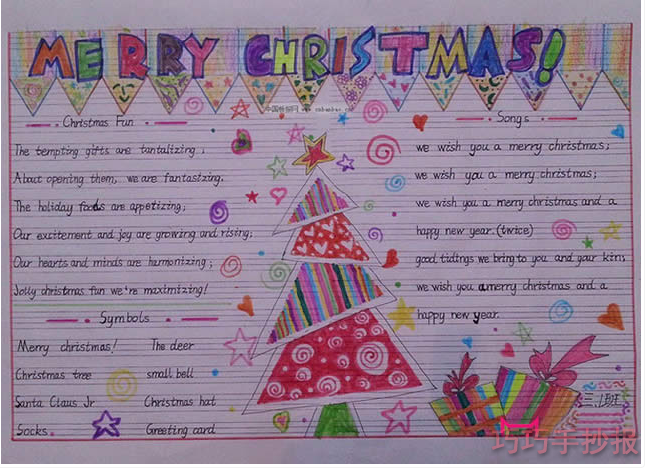 MERRY CHRISTMAS!
Christmas Fun
The tempting gifts are tantalizing;
About opening them, we are fantasizing.
The holiday foods are appetizing;
Our excitement and joy are growing and rising;
Our hearts and minds are harmonizing;
Jolly christmas fun we're maximizing!
Symbols
Merry christmas! The deer
Christmas tree small bell
Santa Claus Jr Christmas hat
Socks Greeting card
Songs
we wish you a merry christmas;
we wish you a merry christmas;
we wish you a merry christmas and a
happy new year.(twice)
good tidings we bring to you and your kin;
we wish you a merry christmas and a
happy new year.
巧巧手抄报